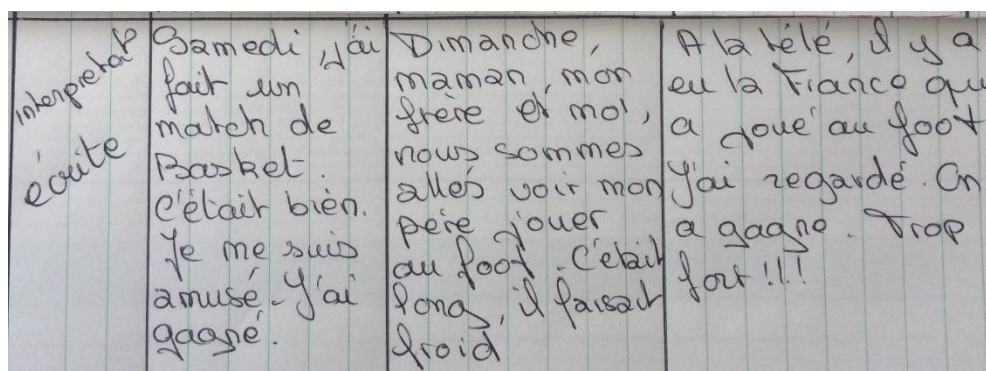 interprétat°
écrite
Samedi, j'ai
fait un
match de
Basket.
c'était bien.
Je me suis
amusé. J'ai
gagné.
Dimanche,
maman, mon
frère et moi,
nous sommes
allés voir mon
père jouer
au foot. C'était
long, il faisait
froid
A la télé, il y a
eu la France qui
a joué au foot
J'ai regardé. On
a gagné. Trop
fort!!!